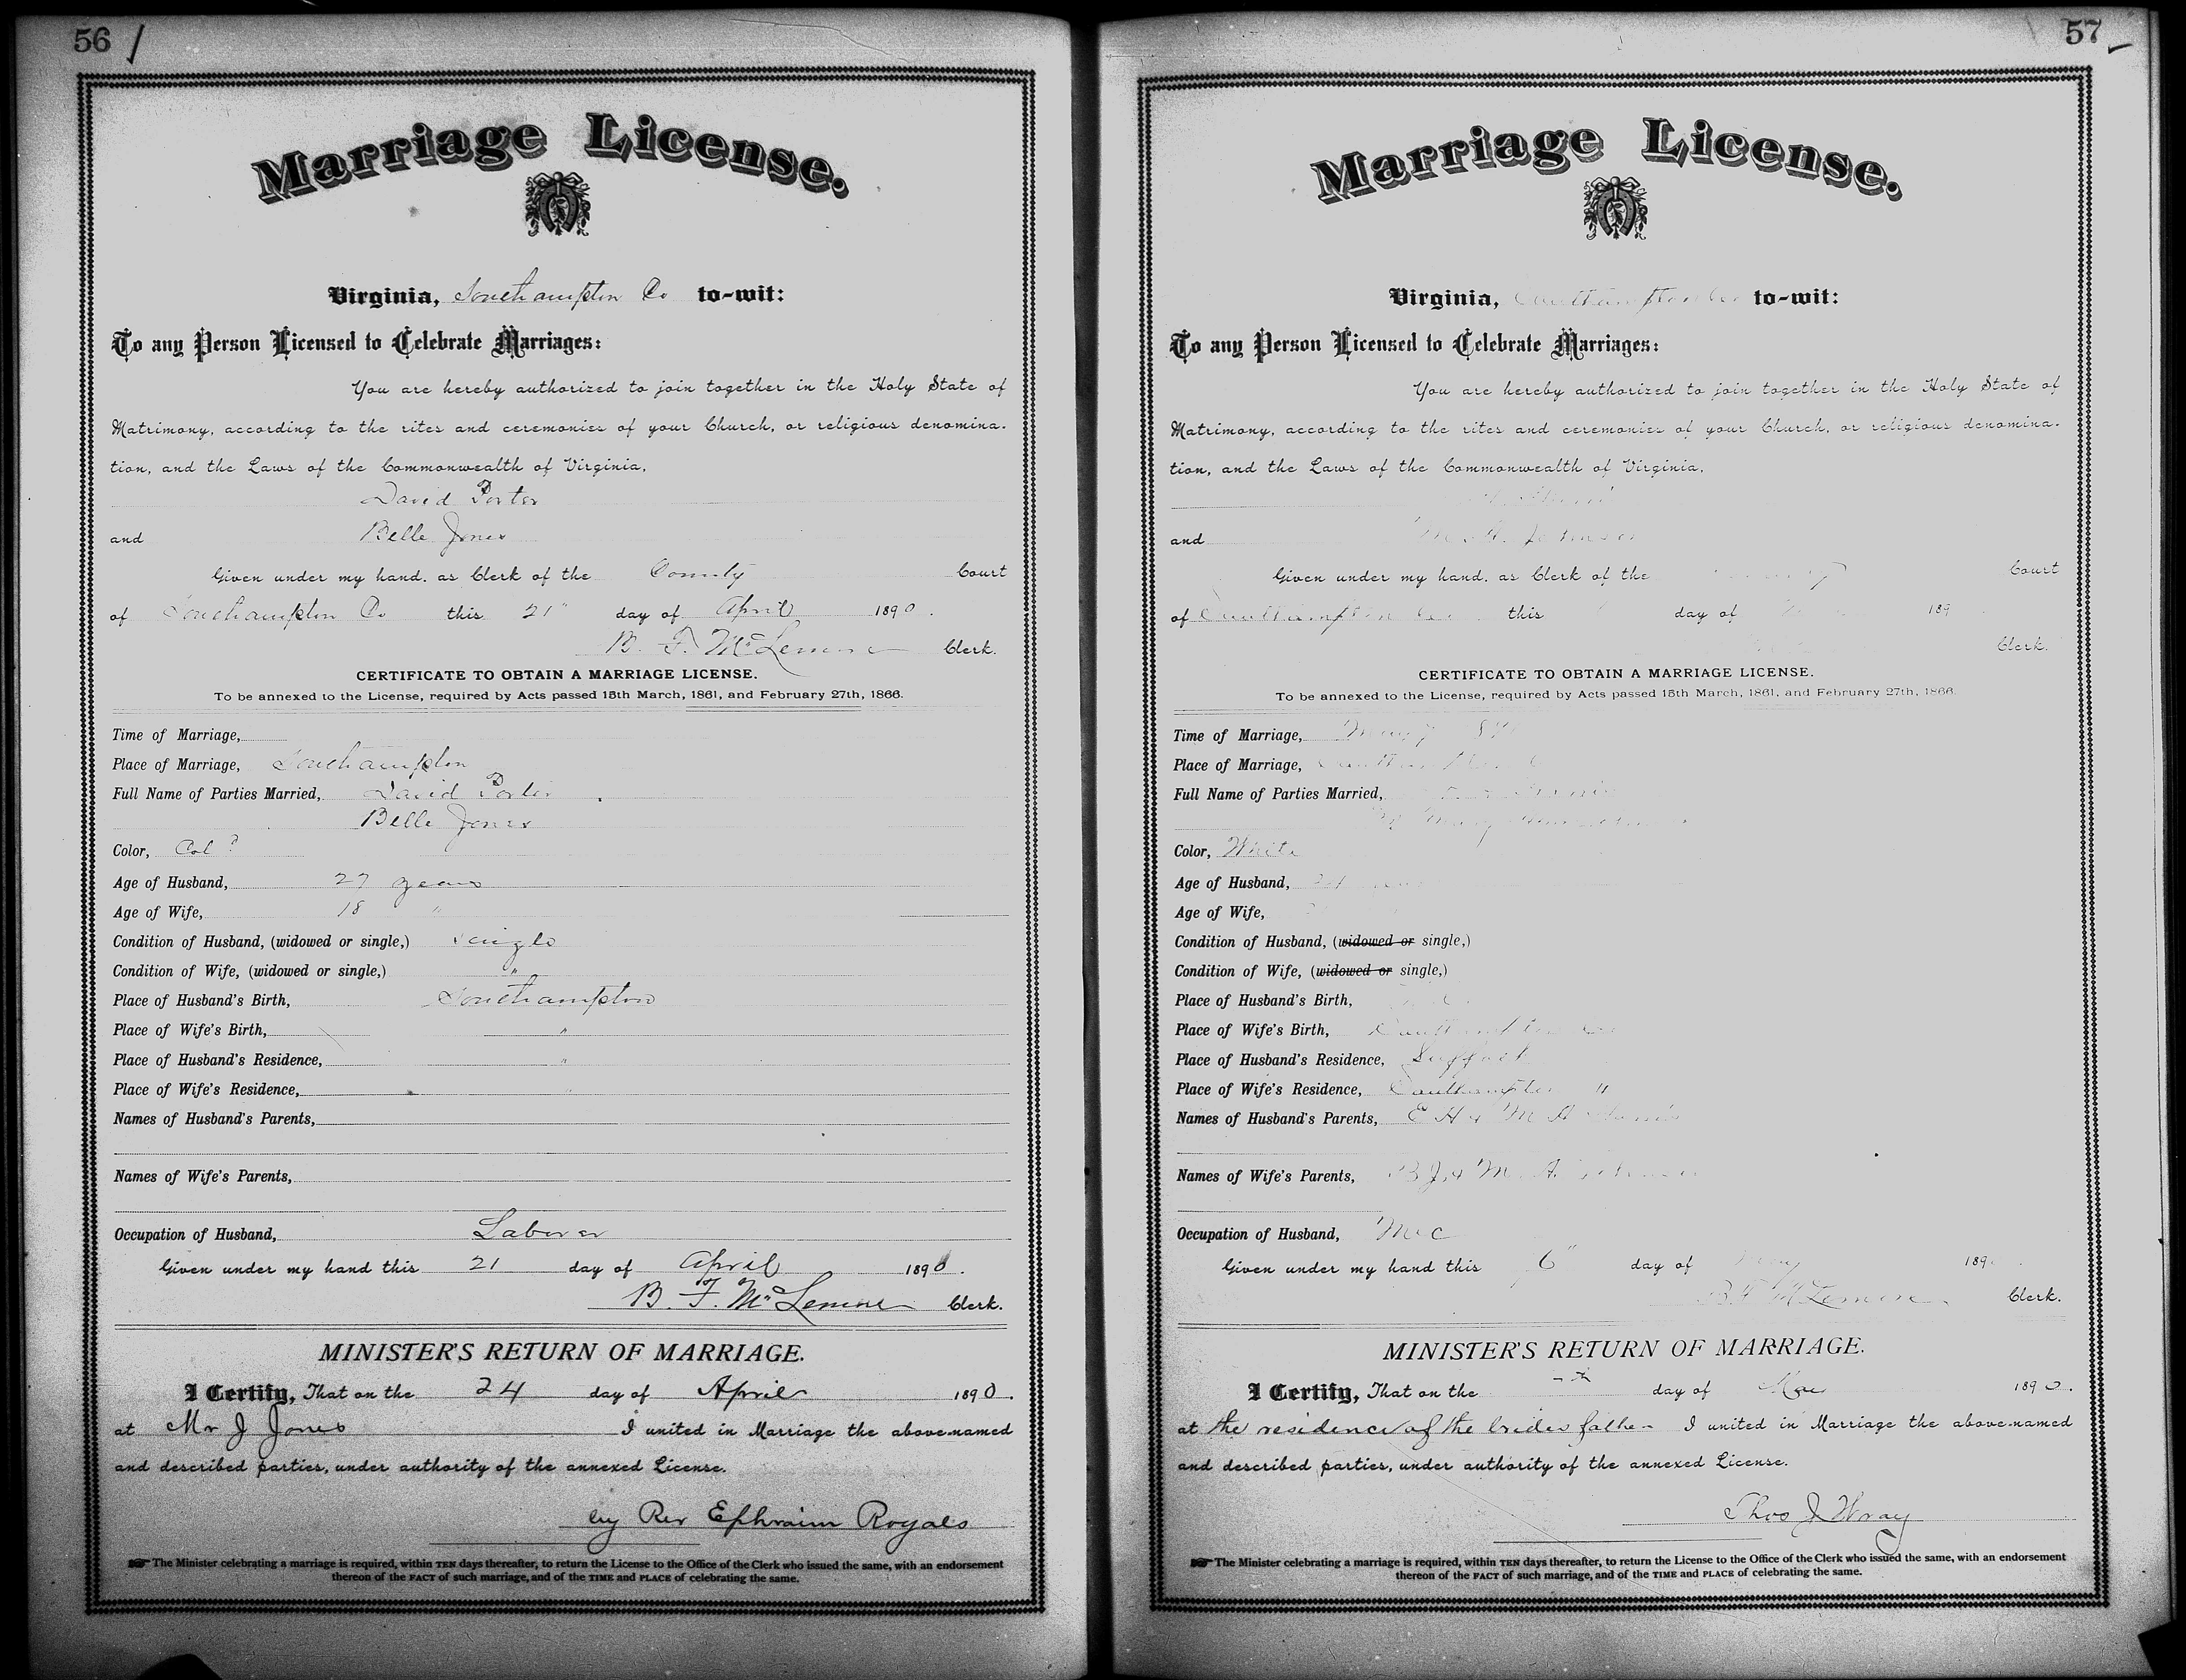 56
Marriage License.
Virginia, Southampton Co to-wit:
To any Person Licensed to Celebrate Marriages:
You are hereby authorized to join together in the Holy State of
Matrimony, according to the rites and ceremonies of your Church, or religious denomina-
tion, and the Laws of the Commonwealth of Virginia,
David Porter
and Belle Jones
Given under my hand, as Clerk of the County Court
of Southampton Co this 21" day of April 1890.
B. F. McLemore Clerk.
CERTIFICATE TO OBTAIN A MARRIAGE LICENSE.
To be annexed to the License, required by Acts passed 15th March, 1861, and February 27th, 1866.
Time of Marriage,
Place of Marriage, Southampton
Full Name of Parties Married, David Porter
Belle Jones
Color, Col
Age of Husband, 27 years
Age of Wife, 18 "
Condition of Husband, (widowed or single,) Single
Condition of Wife, (widowed or single,) "
Place of Husband's Birth, Southampton
Place of Wife's Birth, "
Place of Husband's Residence, "
Place of Wife's Residence, "
Names of Husband's Parents,
Names of Wife's Parents,
Occupation of Husband, Laborer
Given under my hand this 21 day of April 1890.
B. F. McLemore Clerk.
MINISTER'S RETURN OF MARRIAGE.
I Certify, That on the 24 day of April 1890.
at Mr J Jones I united in Marriage the above-named
and described parties, under authority of the annexed License.
by Rev Ephraim Royals
The Minister celebrating a marriage is required, within TEN days thereafter, to return the License to the Office of the Clerk who issued the same, with an endorsement
thereon of the FACT of such marriage, and of the TIME and PLACE of celebrating the same.
57
Marriage License.
Virginia, Southampton Co to-wit:
To any Person Licensed to Celebrate Marriages:
You are hereby authorized to join together in the Holy State of
Matrimony, according to the rites and ceremonies of your Church, or religious denomina-
tion, and the Laws of the Commonwealth of Virginia,
and
Given under my hand, as Clerk of the Court
of Southampton Co this day of 189
Clerk.
CERTIFICATE TO OBTAIN A MARRIAGE LICENSE.
To be annexed to the License, required by Acts passed 15th March, 1861, and February 27th, 1866.
Time of Marriage, May 7
Place of Marriage,
Full Name of Parties Married,
Color, White
Age of Husband,
Age of Wife,
Condition of Husband, (widowed or single,)
Condition of Wife, (widowed or single,)
Place of Husband's Birth,
Place of Wife's Birth, Southampton Co
Place of Husband's Residence, Suffolk
Place of Wife's Residence, Southampton "
Names of Husband's Parents, E H & M A
Names of Wife's Parents, B J & M. A.
Occupation of Husband, Mec
Given under my hand this 6" day of May 189
B F McLemore Clerk.
MINISTER'S RETURN OF MARRIAGE.
I Certify, That on the day of May 1890.
at the residence of the brides father I united in Marriage the above-named
and described parties, under authority of the annexed License.
Thos J Wray
The Minister celebrating a marriage is required, within TEN days thereafter, to return the License to the Office of the Clerk who issued the same, with an endorsement
thereon of the FACT of such marriage, and of the TIME and PLACE of celebrating the same.